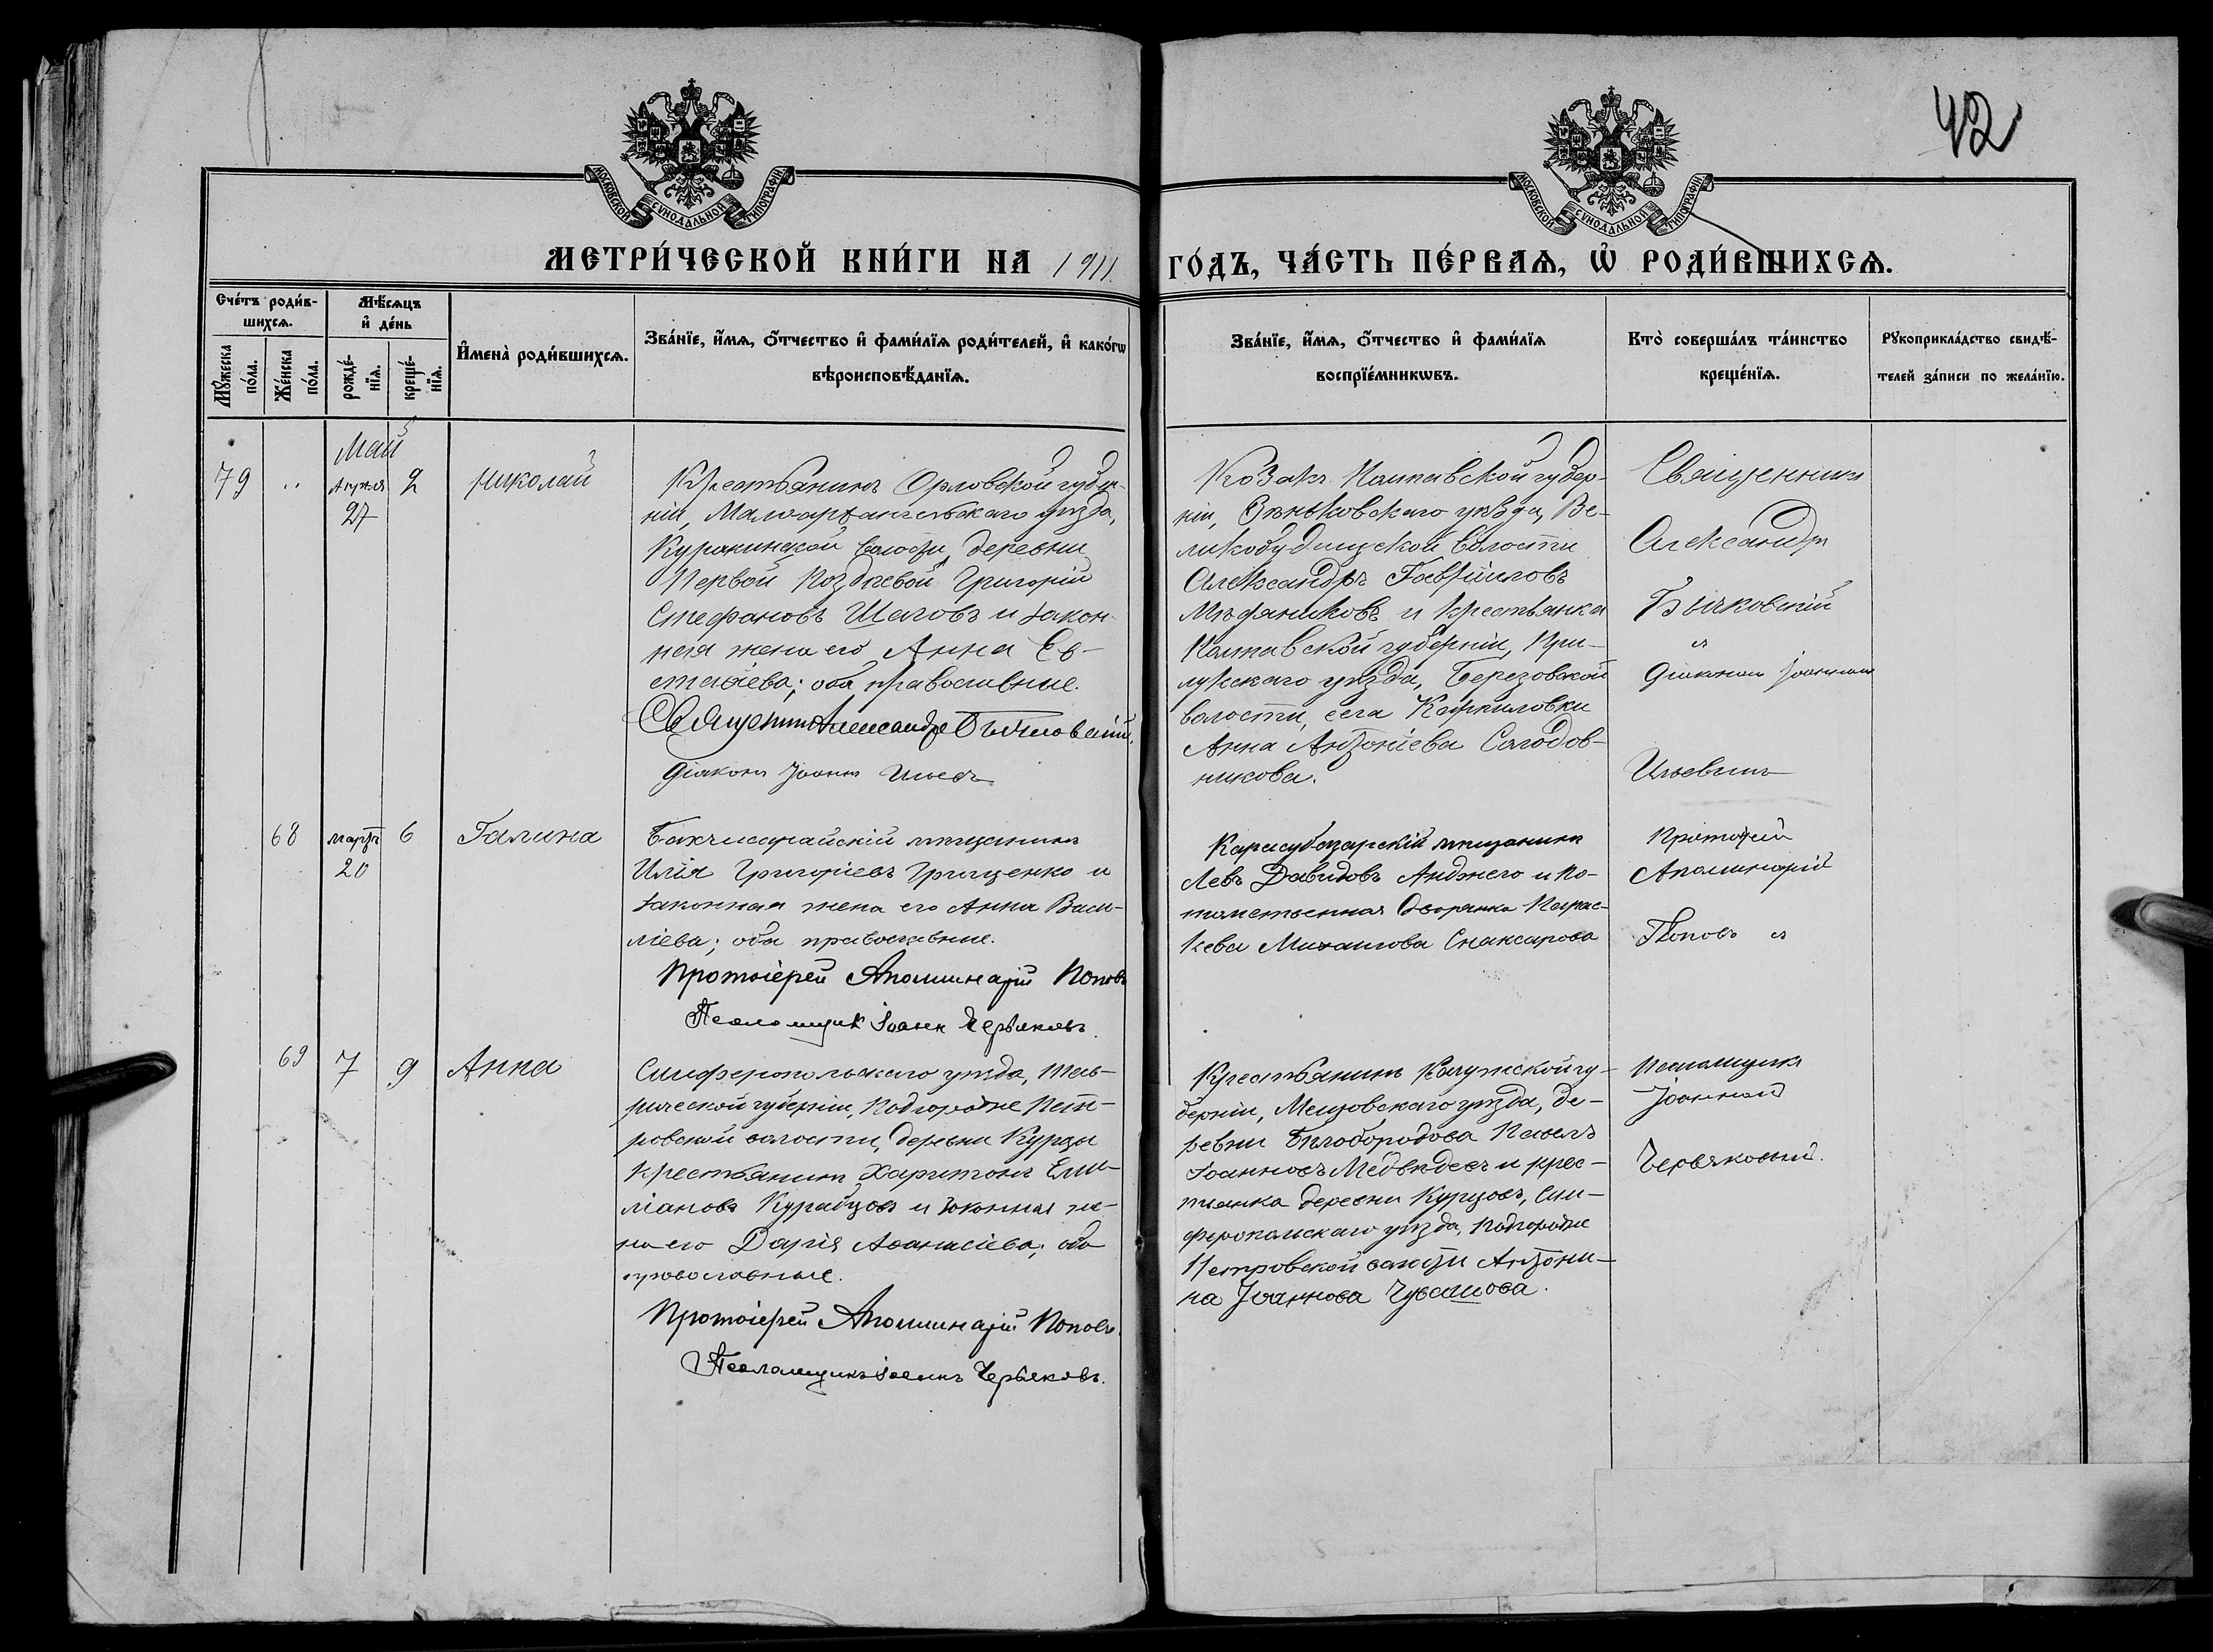 42
МОСКОВСКОЙ СѴНОДАЛЬНОЙ ТИПОГРАФІИ
МОСКОВСКОЙ СѴНОДАЛЬНОЙ ТИПОГРАФІИ
МЕТРИ́ЧЕСКОЙ КНИ́ГИ НА 1911 ГО́ДЪ, ЧА́СТЬ ПЕ́РВАѦ, Ѡ҆ РОДИ́ВШИХСѦ.
Сче́тъ роди́в-
шихсѧ.
Мꙋ́жеска
по́ла.
Же́нска
по́ла.
Мѣ́сѧцъ
и҆ де́нь
рожде́-
нїѧ.
креще́-
нїѧ.
И҆мена̀ роди́вшихсѧ.
Зва́нїе, и҆́мѧ, ѻ҆́тчество и҆ фами́лїѧ роди́телей, и҆ како́гѡ
вѣроисповѣ́данїѧ.
Зва́нїе, и҆́мѧ, ѻ҆́тчество и҆ фами́лїѧ
воспрїе́мникѡвъ.
Кто̀ соверша́лъ та́инство
креще́нїѧ.
Рꙋкоприкла́дство свидѣ́-
телей за́писи по жела́нїю.
Май
79 " Апрѣля 2 Николай
27
Крестьянинъ Орловской губер-
ніи, Малоархангельскаго уѣзда,
Куракинской волости, деревни
Первой Поздѣевой Григорій
Стефановъ Шаговъ и закон-
ная жена его Анна Ев-
стафіева; оба православные.
Священникъ Александръ Бычковскій
Діаконъ Іоаннъ Ильевъ
Козакъ Полтавской губер-
ніи, Зѣньковскаго уѣзда, Ве-
ликобудищской волости
Александръ Гавріиловъ
Мѣдяниковъ и крестьянка
Полтавской губерніи, При-
лукскаго уѣзда, Березовской
волости, села Карпиловки
Анна Антоніева Солодов-
никова.
Священникъ
Александръ
Бычковскій
съ
Діакономъ Іоанномъ
Ильевымъ
68 Марта 6 Галина
20
Бакчисарайскій мѣщанинъ
Илія Григоріевъ Грищенко и
законная жена его Анна Васи-
ліева; оба православные.
Протоіерей Аполлинарій Поповъ
Псаломщикъ Іоаннъ Червяковъ.
Карасубазарскій мѣщанинъ
Левъ Давидовъ и по-
томственная дворянка Парас-
кева Михаилова Снаксарова
Протоіерей
Аполлинарій
Поповъ съ
69 7 9 Анна
Симферопольскаго уѣзда, Тав-
рической губерніи, Подгородне Пет-
ровской волости, деревни Курцы
крестьянинъ Харитонъ Еми-
ліановъ и законная же-
на его Дарія Аѳанасіева; оба
православные.
Протоіерей Аполлинарій Поповъ.
Псаломщикъ Іоаннъ Червяковъ.
Крестьянинъ Калужской гу-
берніи, Мещовскаго уѣзда, де-
ревни Бѣлобородова Павелъ
Іоанновъ Медвѣдевъ и крес-
тьянка деревни Курцовъ, Сим-
феропольскаго уѣзда, Подгородне
Петровской волости Антони-
на Іоаннова Чувашова.
Псаломщикъ
Іоанномъ
Червяковымъ.